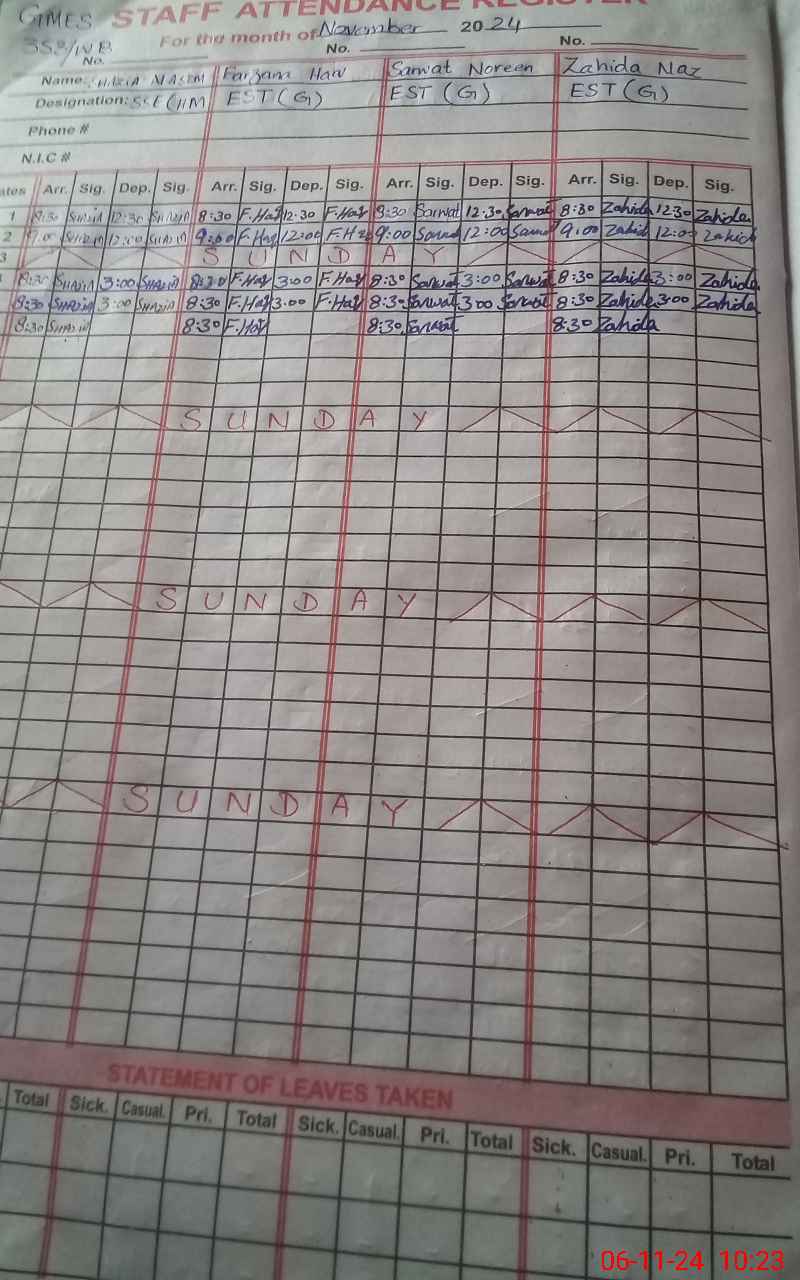 GIMES STAFF ATTENDANCE REGISTER
For the month of November 2024
No. No. No.
Name: Farzana Sarwat Noreen Zahida Naz
Designation: SSE (HM) EST (G) EST (G) EST (G)
Phone #
N.I.C #
ates Arr. Sig. Dep. Sig. Arr. Sig. Dep. Sig. Arr. Sig. Dep. Sig. Arr. Sig. Dep. Sig.
1 8:30 Shazia 12:30 Shazia 8:30 F.Haq 12.30 F.Haq 8:30 Sarwat 12.30 Sarwat 8:30 Zahida 12 30 Zahida
2 9:00 Shazia 12:00 Shazia 9:00 F.Haq 12:00 F.Haq 9:00 Sarwat 12:00 Sarwat 9:00 Zahid 12:00 Zahida
3 SUNDAY
8:30 Shazia 3:00 Shazia 8:30 F.Haq 3:00 F.Haq 8:30 Sarwat 3:00 Sarwat 8:30 Zahida 3:00 Zahida
8:30 Shazia 3:00 Shazia 8:30 F.Haq 3:00 F.Haq 8:30 Sarwat 3 00 Sarwat 8:30 Zahida 3:00 Zahida
8:30 Shazia 8:30 F.Haq 8:30 Sarwat 8:30 Zahida
SUNDAY
SUNDAY
SUNDAY
STATEMENT OF LEAVES TAKEN
Total Sick. Casual. Pri. Total Sick. Casual. Pri. Total Sick. Casual. Pri. Total
06-11-24 10:23